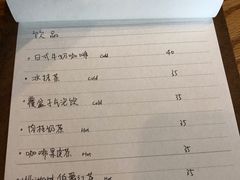 饮品
· 日式牛奶咖啡 Cold 40
· 冰抹茶 Cold 35
· 覆盆子气泡饮 Cold 35
· 肉桂奶茶 Hot 35
· 咖啡果皮茶 Hot 35
伯爵红茶 Hot 35